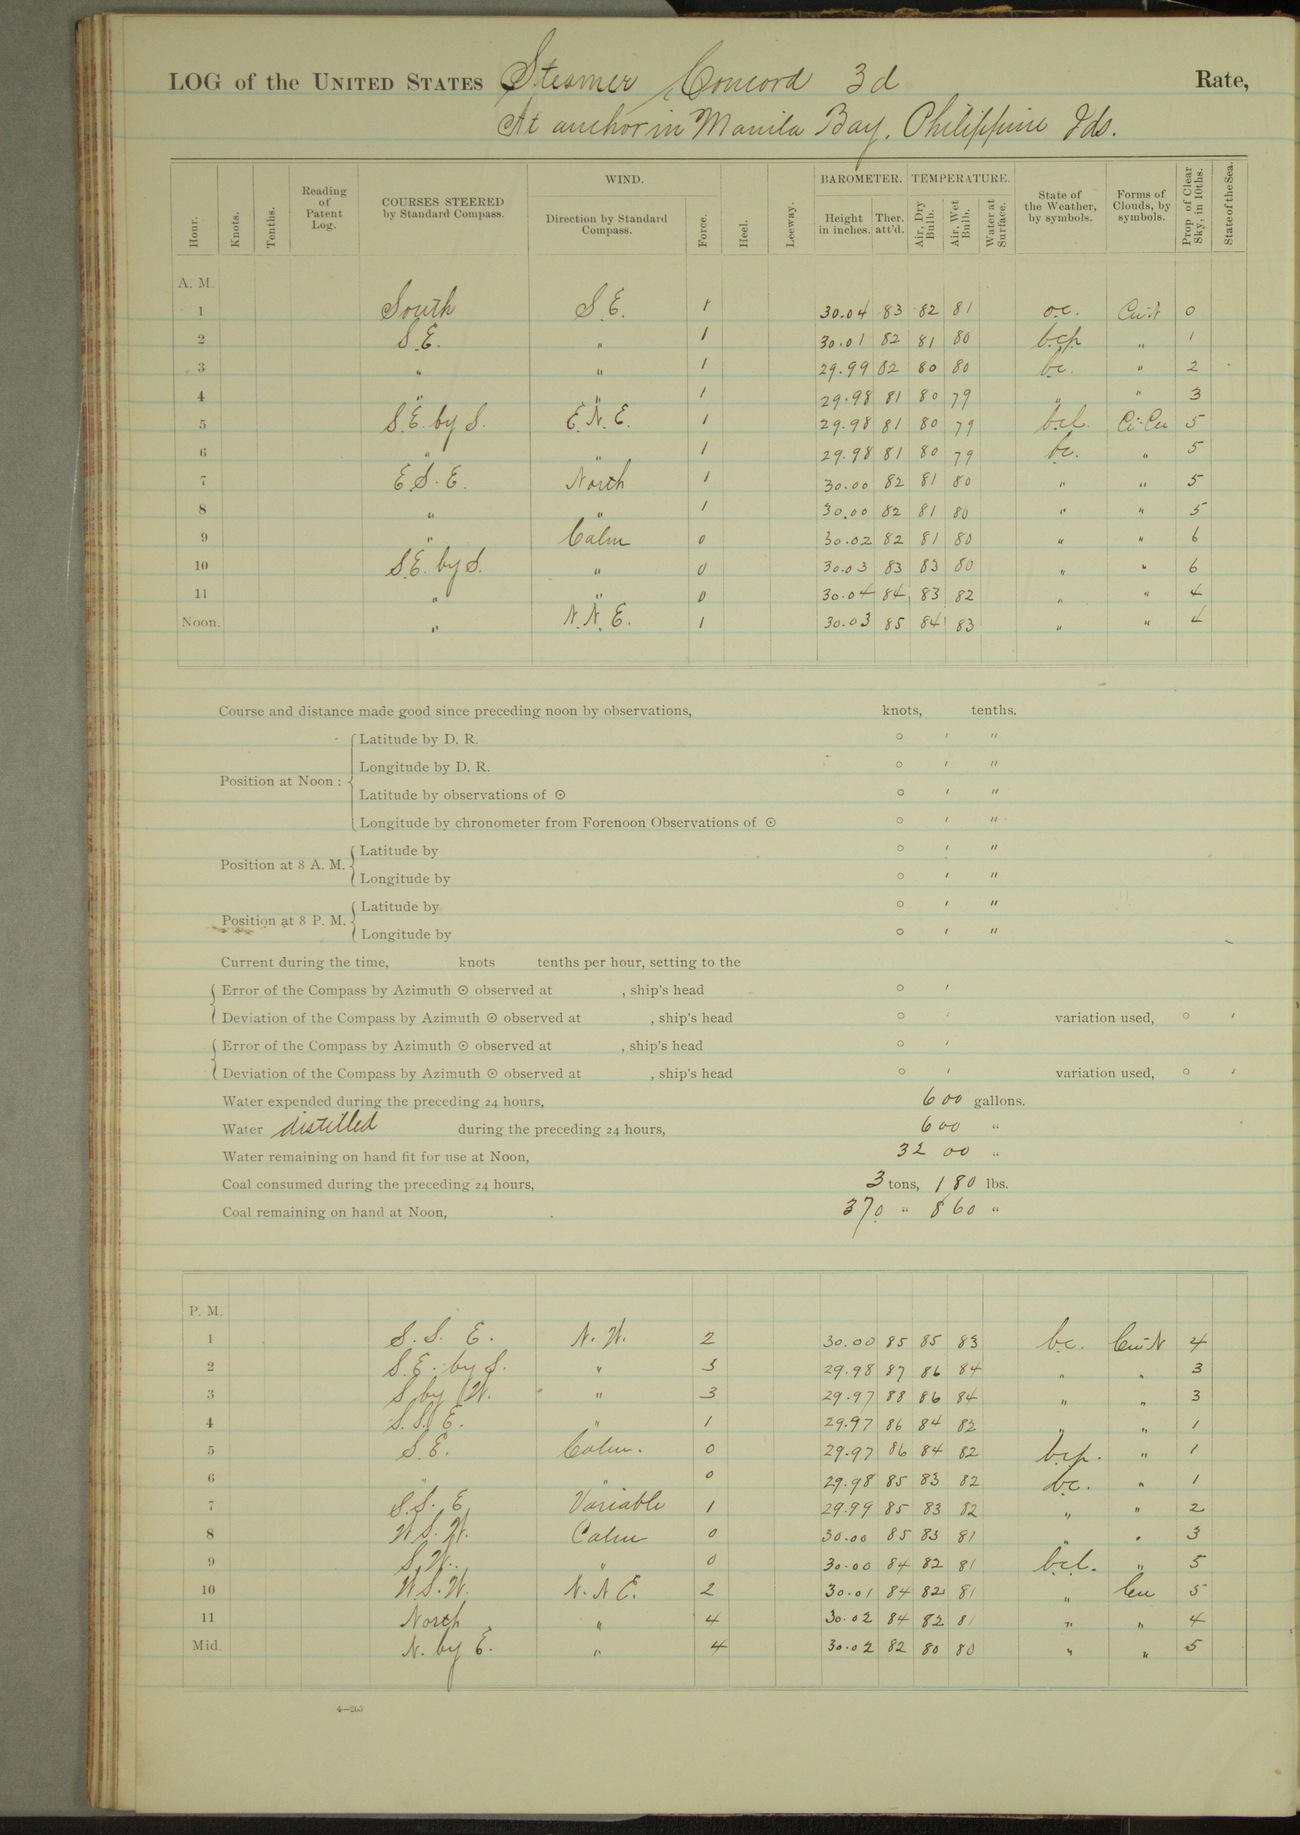 LOG of the UNITED STATES Steamer Concord 3d Rate,
At anchor in Manila Bay, Philippine Ids.
Hour. Knots. Tenths. Reading of Patent Log. COURSES STEERED by Standard Compass. WIND. Direction by Standard Compass. Force. Heel. Leeway. BAROMETER. Height in inches. Ther. att'd. TEMPERATURE. Air, Dry Bulb. Air, Wet Bulb. Water at Surface. State of the Weather, by symbols. Forms of Clouds, by symbols. Prop of Clear Sky, in 10ths. State of the Sea.
A. M.
1 South S.E. 1 30.04 83 82 81 o.c. Cu-N 0
2 S.E. " 1 30.01 82 81 80 bcp " 1
3 " " 1 29.99 82 80 80 bc. " 2
4 " " 1 29.98 81 80 79 " " 3
5 S.E. by S. E.N.E. 1 29.98 81 80 79 bcl. Ci-Cu 5
6 " " 1 29.98 81 80 79 bc. " 5
7 E.S.E. North 1 30.00 82 81 80 " " 5
8 " " 1 30.00 82 81 80 " " 5
9 " Calm 0 30.02 82 81 80 " " 6
10 S.E. by S. " 0 30.03 83 83 80 " " 6
11 " " 0 30.04 84 83 82 " " 4
Noon. " N.N.E. 1 30.03 85 84 83 " " 4
Course and distance made good since preceding noon by observations, knots, tenths.
Position at Noon: Latitude by D. R. ° ′ ″
Longitude by D. R. ° ′ ″
Latitude by observations of ☉ ° ′ ″
Longitude by chronometer from Forenoon Observations of ☉ ° ′ ″
Position at 8 A. M. Latitude by ° ′ ″
Longitude by ° ′ ″
Position at 8 P. M. Latitude by ° ′ ″
Longitude by ° ′ ″
Current during the time, knots tenths per hour, setting to the
Error of the Compass by Azimuth ☉ observed at , ship's head ° ′
Deviation of the Compass by Azimuth ☉ observed at , ship's head ° ′ variation used, ° ′
Error of the Compass by Azimuth ☉ observed at , ship's head ° ′
Deviation of the Compass by Azimuth ☉ observed at , ship's head ° ′ variation used, ° ′
Water expended during the preceding 24 hours, 600 gallons.
Water distilled during the preceding 24 hours, 600 "
Water remaining on hand fit for use at Noon, 3200 "
Coal consumed during the preceding 24 hours, 3 tons, 180 lbs.
Coal remaining on hand at Noon, 370 " 860 "
P. M.
1 S.S.E. N.W. 2 30.00 85 85 83 b.c. Cu-N 4
2 S.E. by S. " 3 29.98 87 86 84 " " 3
3 S by W. " 3 29.97 88 86 84 " " 3
4 S.S.E. " 1 29.97 86 84 82 " " 1
5 S.E. Calm. 0 29.97 86 84 82 bcp. " 1
6 " " 0 29.98 85 83 82 bc. " 1
7 S.S.E. Variable 1 29.99 85 83 82 " " 2
8 W.S.W. Calm 0 30.00 85 83 81 " " 3
9 S.W. " 0 30.00 84 82 81 bcl. " 5
10 W.S.W. N.N.E. 2 30.01 84 82 81 " Cu 5
11 North " 4 30.02 84 82 81 " " 4
Mid. N. by E. " 4 30.02 82 80 80 " " 5
4—265